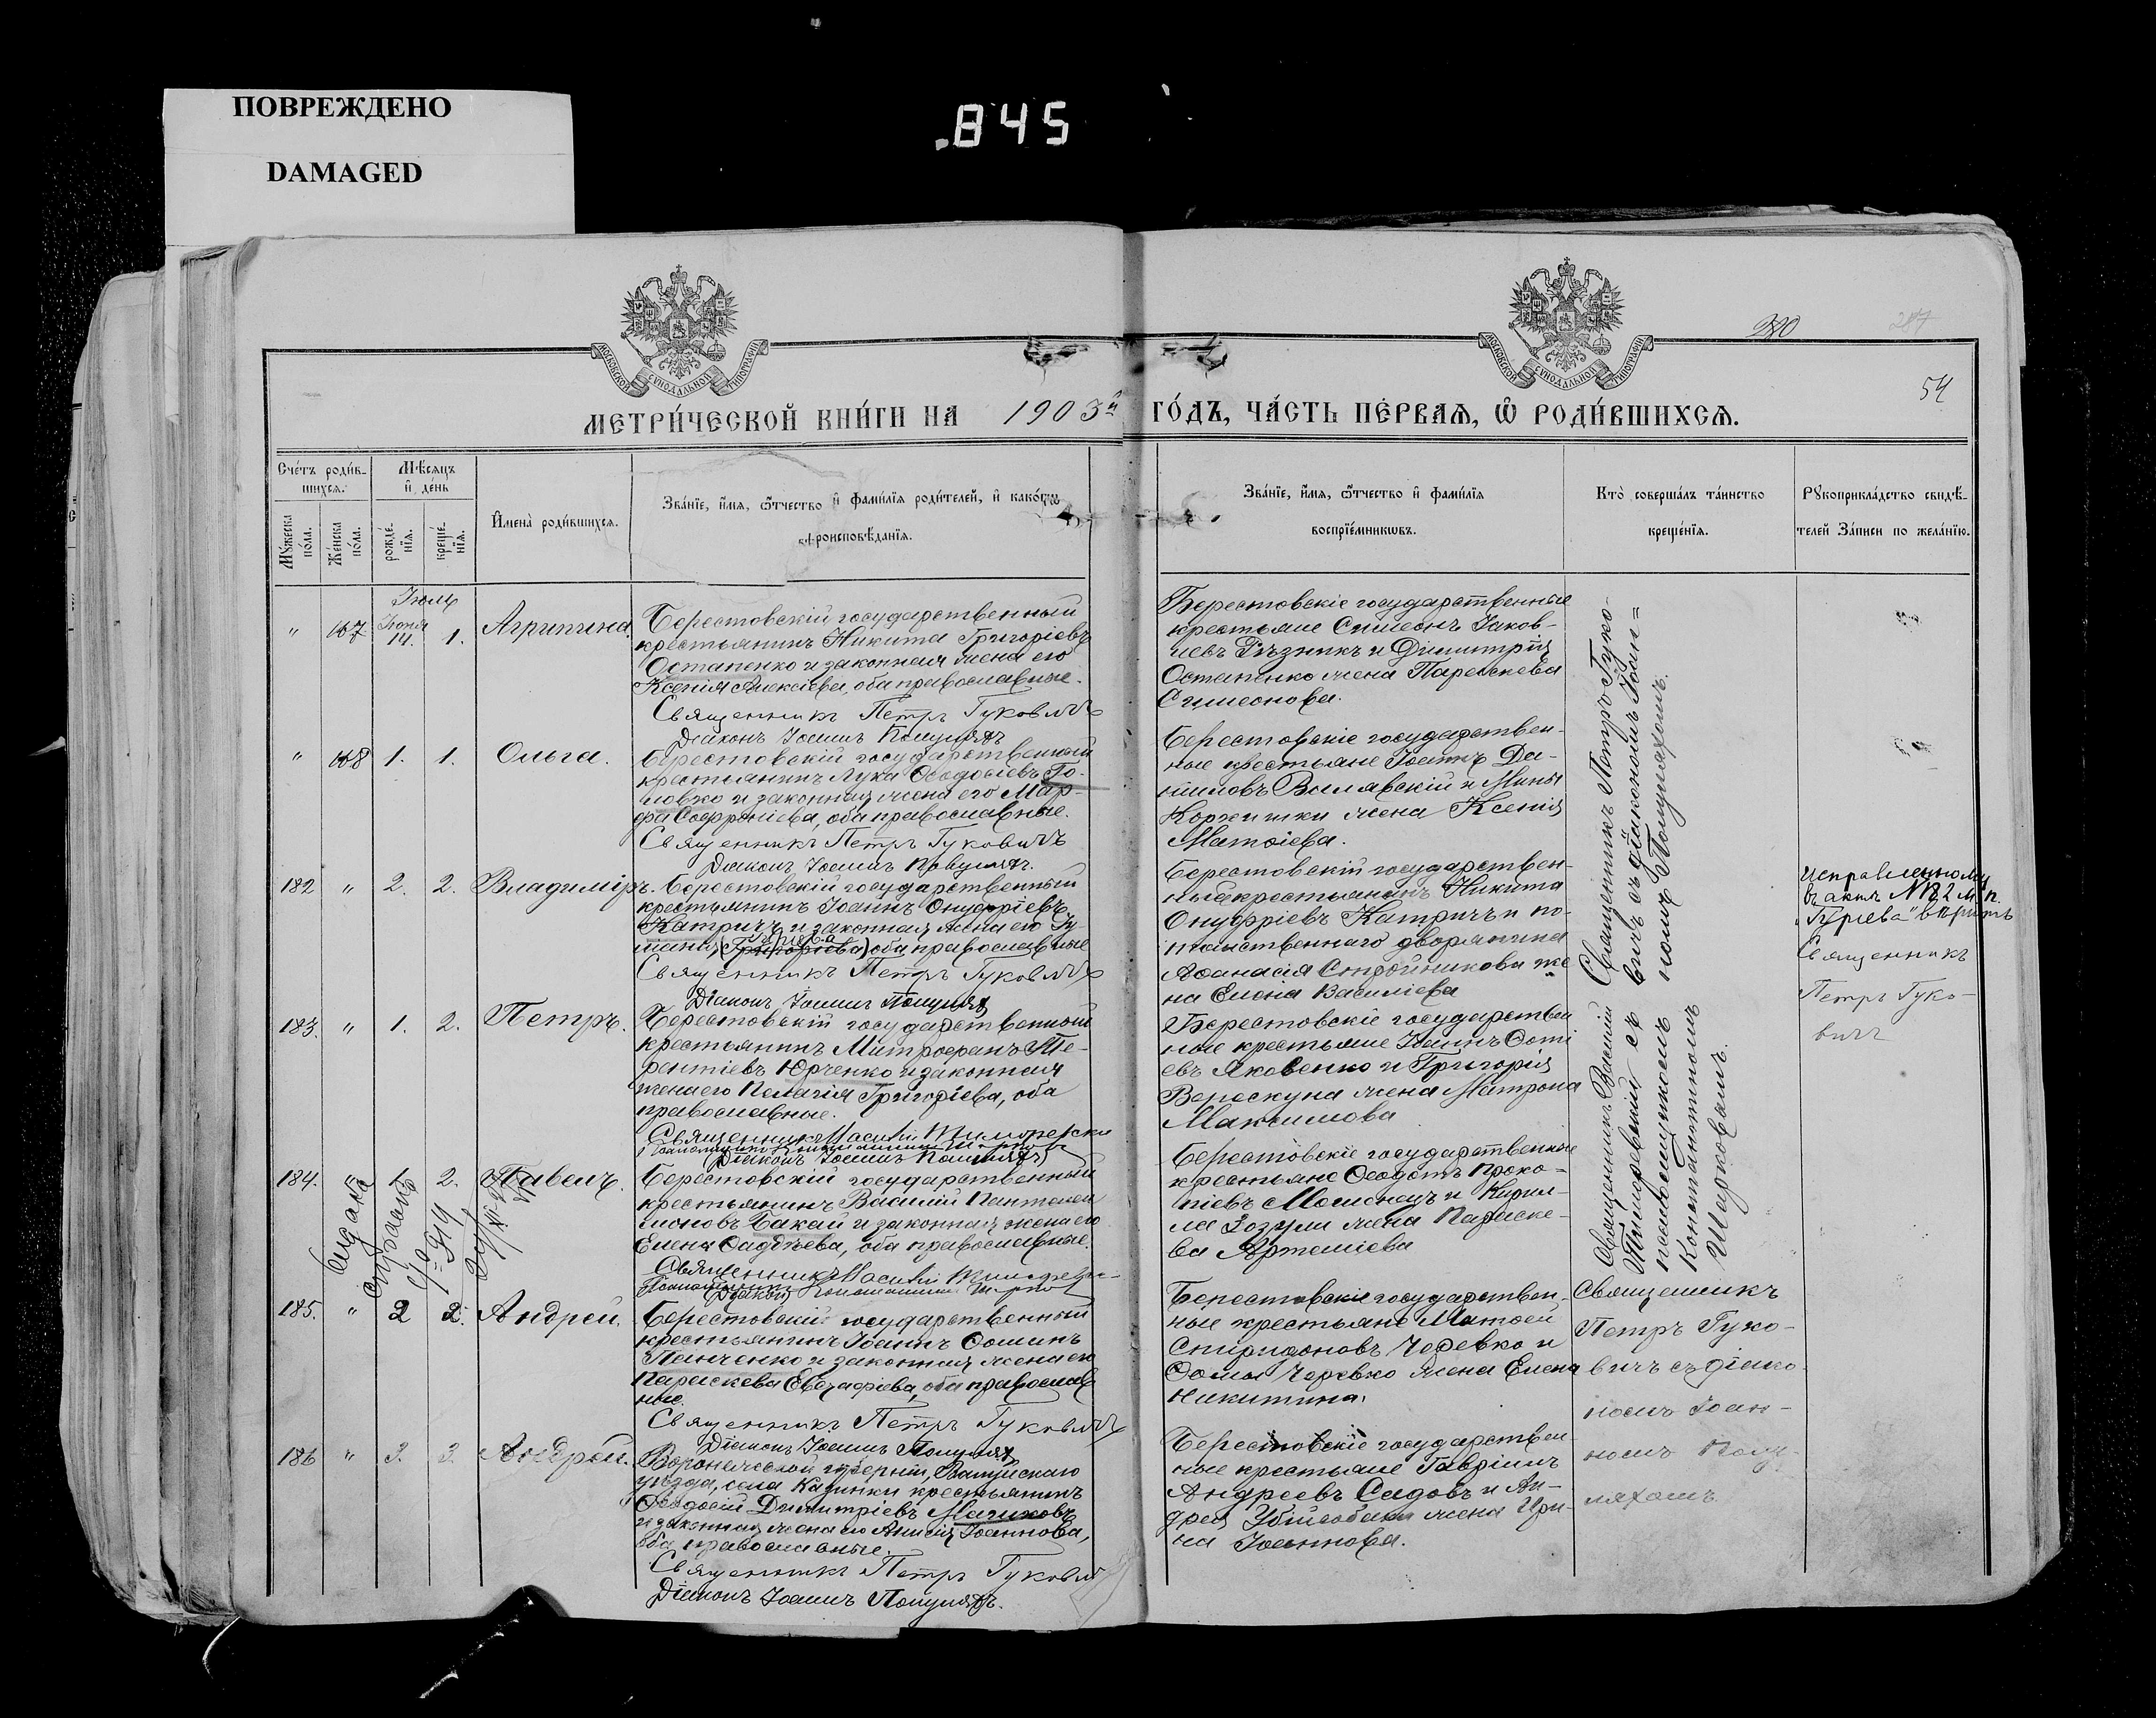 ПОВРЕЖДЕНО
DAMAGED
.845
МОСКОВСКОЙ СѴНОДАЛЬНОЙ ТИПОГРАФІИ
МОСКОВСКОЙ СѴНОДАЛЬНОЙ ТИПОГРАФІИ
287
54
МЕТРИ́ЧЕСКОЙ КНИ́ГИ НА 1903й ГО́ДЪ, ЧА́СТЬ ПЕ́РВАЯ, Ѿ РОДИ́ВШИХСЯ.
Сче́тъ роди́в-
шихся.
Мѣсяцъ
и де́нь
Мꙋжеска по́ла.
Же́нска по́ла.
рожде́нїя.
креще́нїя.
Имена̀ роди́вшихся.
Зва́нїе, и́мя, ѿтчество и фами́лїя роди́телей, и како́гѡ
вѣроисповѣ́данїя.
Зва́нїе, и́мя, ѿтчество и фами́лїя
воспрїе́мникѡвъ.
Кто̀ соверша́лъ та́инство
креще́нїя.
Рꙋкоприкла́дство свидѣ́-
телей за́писи по жела́нїю.
Іюль
Іюня
" 167 14. 1. Агрипина.
Берестовскій государственный
крестьянинъ Никита Григоріевъ
Остапенко и законная жена его
Ксенія Алексіева, оба православные.
Священникъ Петръ Гуковичъ
Діаконъ Іоаннъ Полуляхъ
Берестовскіе государственные
крестьяне Симеонъ Іаков-
левъ Рѣзникъ и Димитрія
Остапенко жена Параскева
Симеонова.
Священникъ Петръ Гуко-
вичъ съ діакономъ Іоан=
номъ Полуляхомъ.
" 168 1. 1. Ольга.
Берестовскій государственный
крестьянинъ Лука Ѳеодосіевъ Го-
ловко и законная жена его Мар-
фа Софроніева, оба православные.
Священникъ Петръ Гуковичъ
Діаконъ Іоаннъ Полуляхъ.
Берестовскіе государствен-
ные крестьяне Іоаннъ Да-
ниловъ Вилавскій и Мины
Коржишки жена Ксенія
Матѳіева.
182 " 2. 2. Владиміръ.
Берестовскій государственный
крестьянинъ Іоаннъ Онуфріевъ
Катричъ и законная жена его Іу-
Гуріева
ліанія (Григоріева) оба православные
Священникъ Петръ Гуковичъ
Діаконъ Іоаннъ Полуляхъ
Берестовскій государствен-
ный крестьянинъ Никита
Онуфріевъ Катричъ и по-
томственнаго дворянина
Аѳанасія Стройникова же
на Елена Василіева
Исправленному
въ актѣ №182 м. п.
"Гуріева" вѣрить
Священникъ
Петръ Гуко-
вичъ
183. " 1. 2. Петръ.
Берестовскій государственный
крестьянинъ Митрофанъ Те-
рентіевъ Юрченко и законная
жена его Пелагія Григоріева, оба
православные.
Священникъ Василій Тимоѳевскі
Псаломщикъ Константинъ Шарков
Діаконъ Іоаннъ Полуляхъ
Берестовскіе государствен
ные крестьяне Іоаннъ Ѳоті
евъ Яковенко и Григорія
Верескуна жена Матрона
Максимова
Священникъ Василій
Тимоѳевскій съ
псаломщикомъ
Константиномъ
Шарковымъ.
184. " 1. 2. Павелъ.
Выдана
справка
Берестовскій государственный
крестьянинъ Василій Пантелеи
моновъ Бакай и законная жена его
Елена Ѳаддѣева, оба православные.
Священникъ Василій Тимоѳевс-
Псаломщикъ Константинъ Шарков
Берестовскіе государственные
крестьяне Ѳеодотъ Проко-
піевъ Момонецъ и Кирил-
ла Зозули жена Параске-
ва Артеміева
185. " 2 2. Андрей.
Берестовскій государственный
крестьянинъ Іоаннъ Ѳоминъ
Панченко и законная жена его
Параскева Евграфіева, оба православ
ные.
Священникъ Петръ Гуковичъ
Діаконъ Іоаннъ Полуляхъ
Берестовскіе государствен-
ные крестьяне Матѳей
Спиридоновъ Черевко и
Ѳомы Черевко жена Елена
Никитина.
Священникъ
Петръ Гуко-
вичъ съ діако-
номъ Іоан-
номъ Полу-
ляхомъ
186 " 3. 3. Андрей.
Воронежской губерніи, Валуйскаго
уѣзда, села Казинки крестьянинъ
Ѳеодосій Димитріевъ Мачиковъ
и законная жена его Анисія Іоаннова,
оба православные.
Священникъ Петръ Гуковичъ
Діаконъ Іоаннъ Полуляхъ.
Берестовскіе государствен-
ные крестьяне Гавріилъ
Андреевъ Сидовъ и Ан-
дрея Убійсобаки жена Ири-
на Іоаннова.